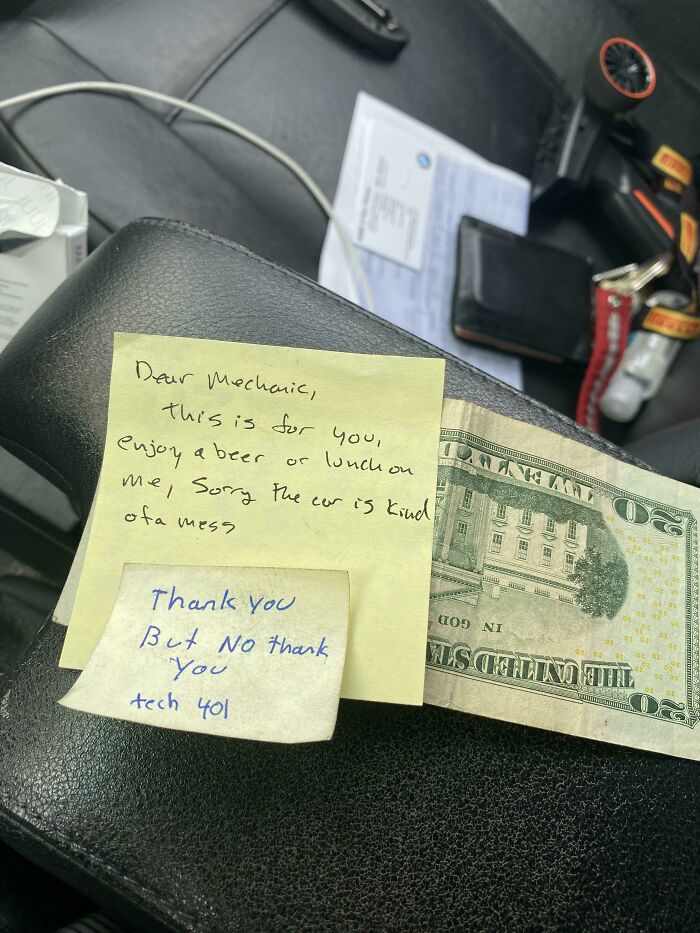 Dear Mechanic,
this is for you,
enjoy a beer or lunch on
me, Sorry the car is kind
of a mess
Thank you
But No thank
you
tech 401
20
TWENTY DO
IN GOD
THE UNITED STA
20